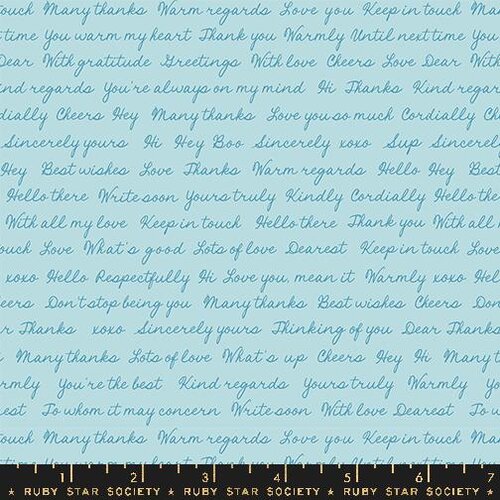 ouch Many thanks Warm regards Love you Keep in touch Many
time You warm my heart Thank you Warmly Until next time You
Dear With gratitude Greetings With love Cheers Love Dear With
nd regards You're always on my mind Hi Thanks Kind regar
dially Cheers Hey Many thanks Love you so much Cordially Ch
Sincerely yours Hi Hey Boo Sincerely xoxo Sup Sincerely
Hey Best wishes Love Thanks Warm regards Hello Hey Best
Hello there Write soon Yours truly Kindly Cordially Hello the
With all my love Keep in touch Hello there Thank you With all
ouch Love What's good Lots of love Dearest Keep in touch Love
xoxo Hello Respectfully Hi Love you, mean it Warmly xoxo Hel
eers Don't stop being you Many thanks Best wishes Cheers Don
r Thanks xoxo Sincerely yours Thinking of you Dear Thanks
Many thanks Lots of love What's up Cheers Hey Hi Many t
rmly You're the best Kind regards Yours truly Warmly Yo
est To whom it may concern Write soon With love Dearest To w
ouch Many thanks Warm regards Love you Keep in touch Many
time You warm my heart Thank you Warmly Until next time You
1 2 3 4 5 6 7
RUBY STAR SOCIETY ★ RUBY STAR SOCIETY ★ RUBY STAR SOCIETY ★